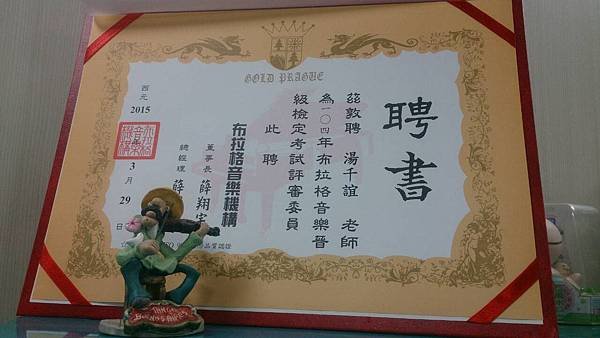 GOLD PRAGUE
聘書
茲敦聘 湯千誼 老師
為一〇四年布拉格音樂晉
級檢定考試評審委員
此聘
布拉格音樂機構
董事長 薛翔
總經理 薛
西元 2015 年 3 月 29 日
品質認證